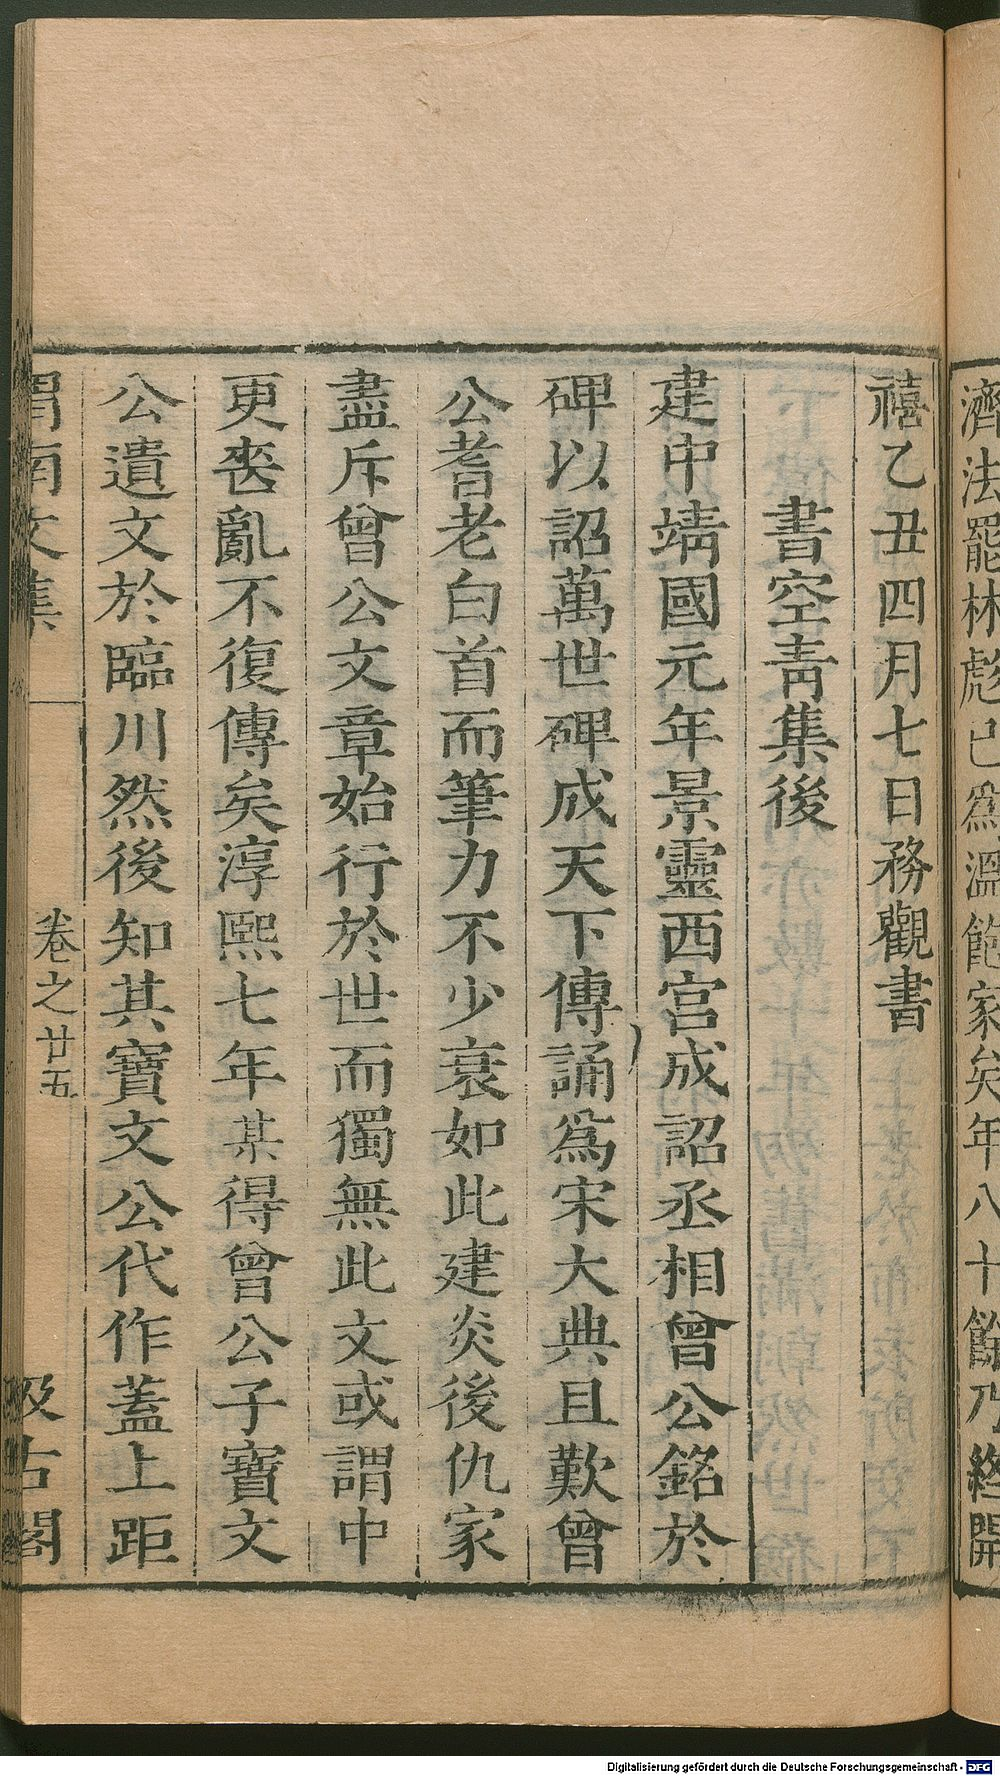 濟法罷林彪已為溫飽家矣年八十餘乃終開
禧乙丑四月七日務觀書
書空青集後
建中靖國元年景靈西宮成詔丞相曾公銘於
碑以詔萬世碑成天下傳誦為宋大典且歎曾
公耆老白首而筆力不少衰如此建炎後仇家
盡斥曾公文章始行於世而獨無此文或謂中
更喪亂不復傳矣淳熙七年某得曾公子寶文
公遺文於臨川然後知其寶文公代作蓋上距
渭南文集 卷之廿五 汲古閣
Digitalisierung gefördert durch die Deutsche Forschungsgemeinschaft - DFG